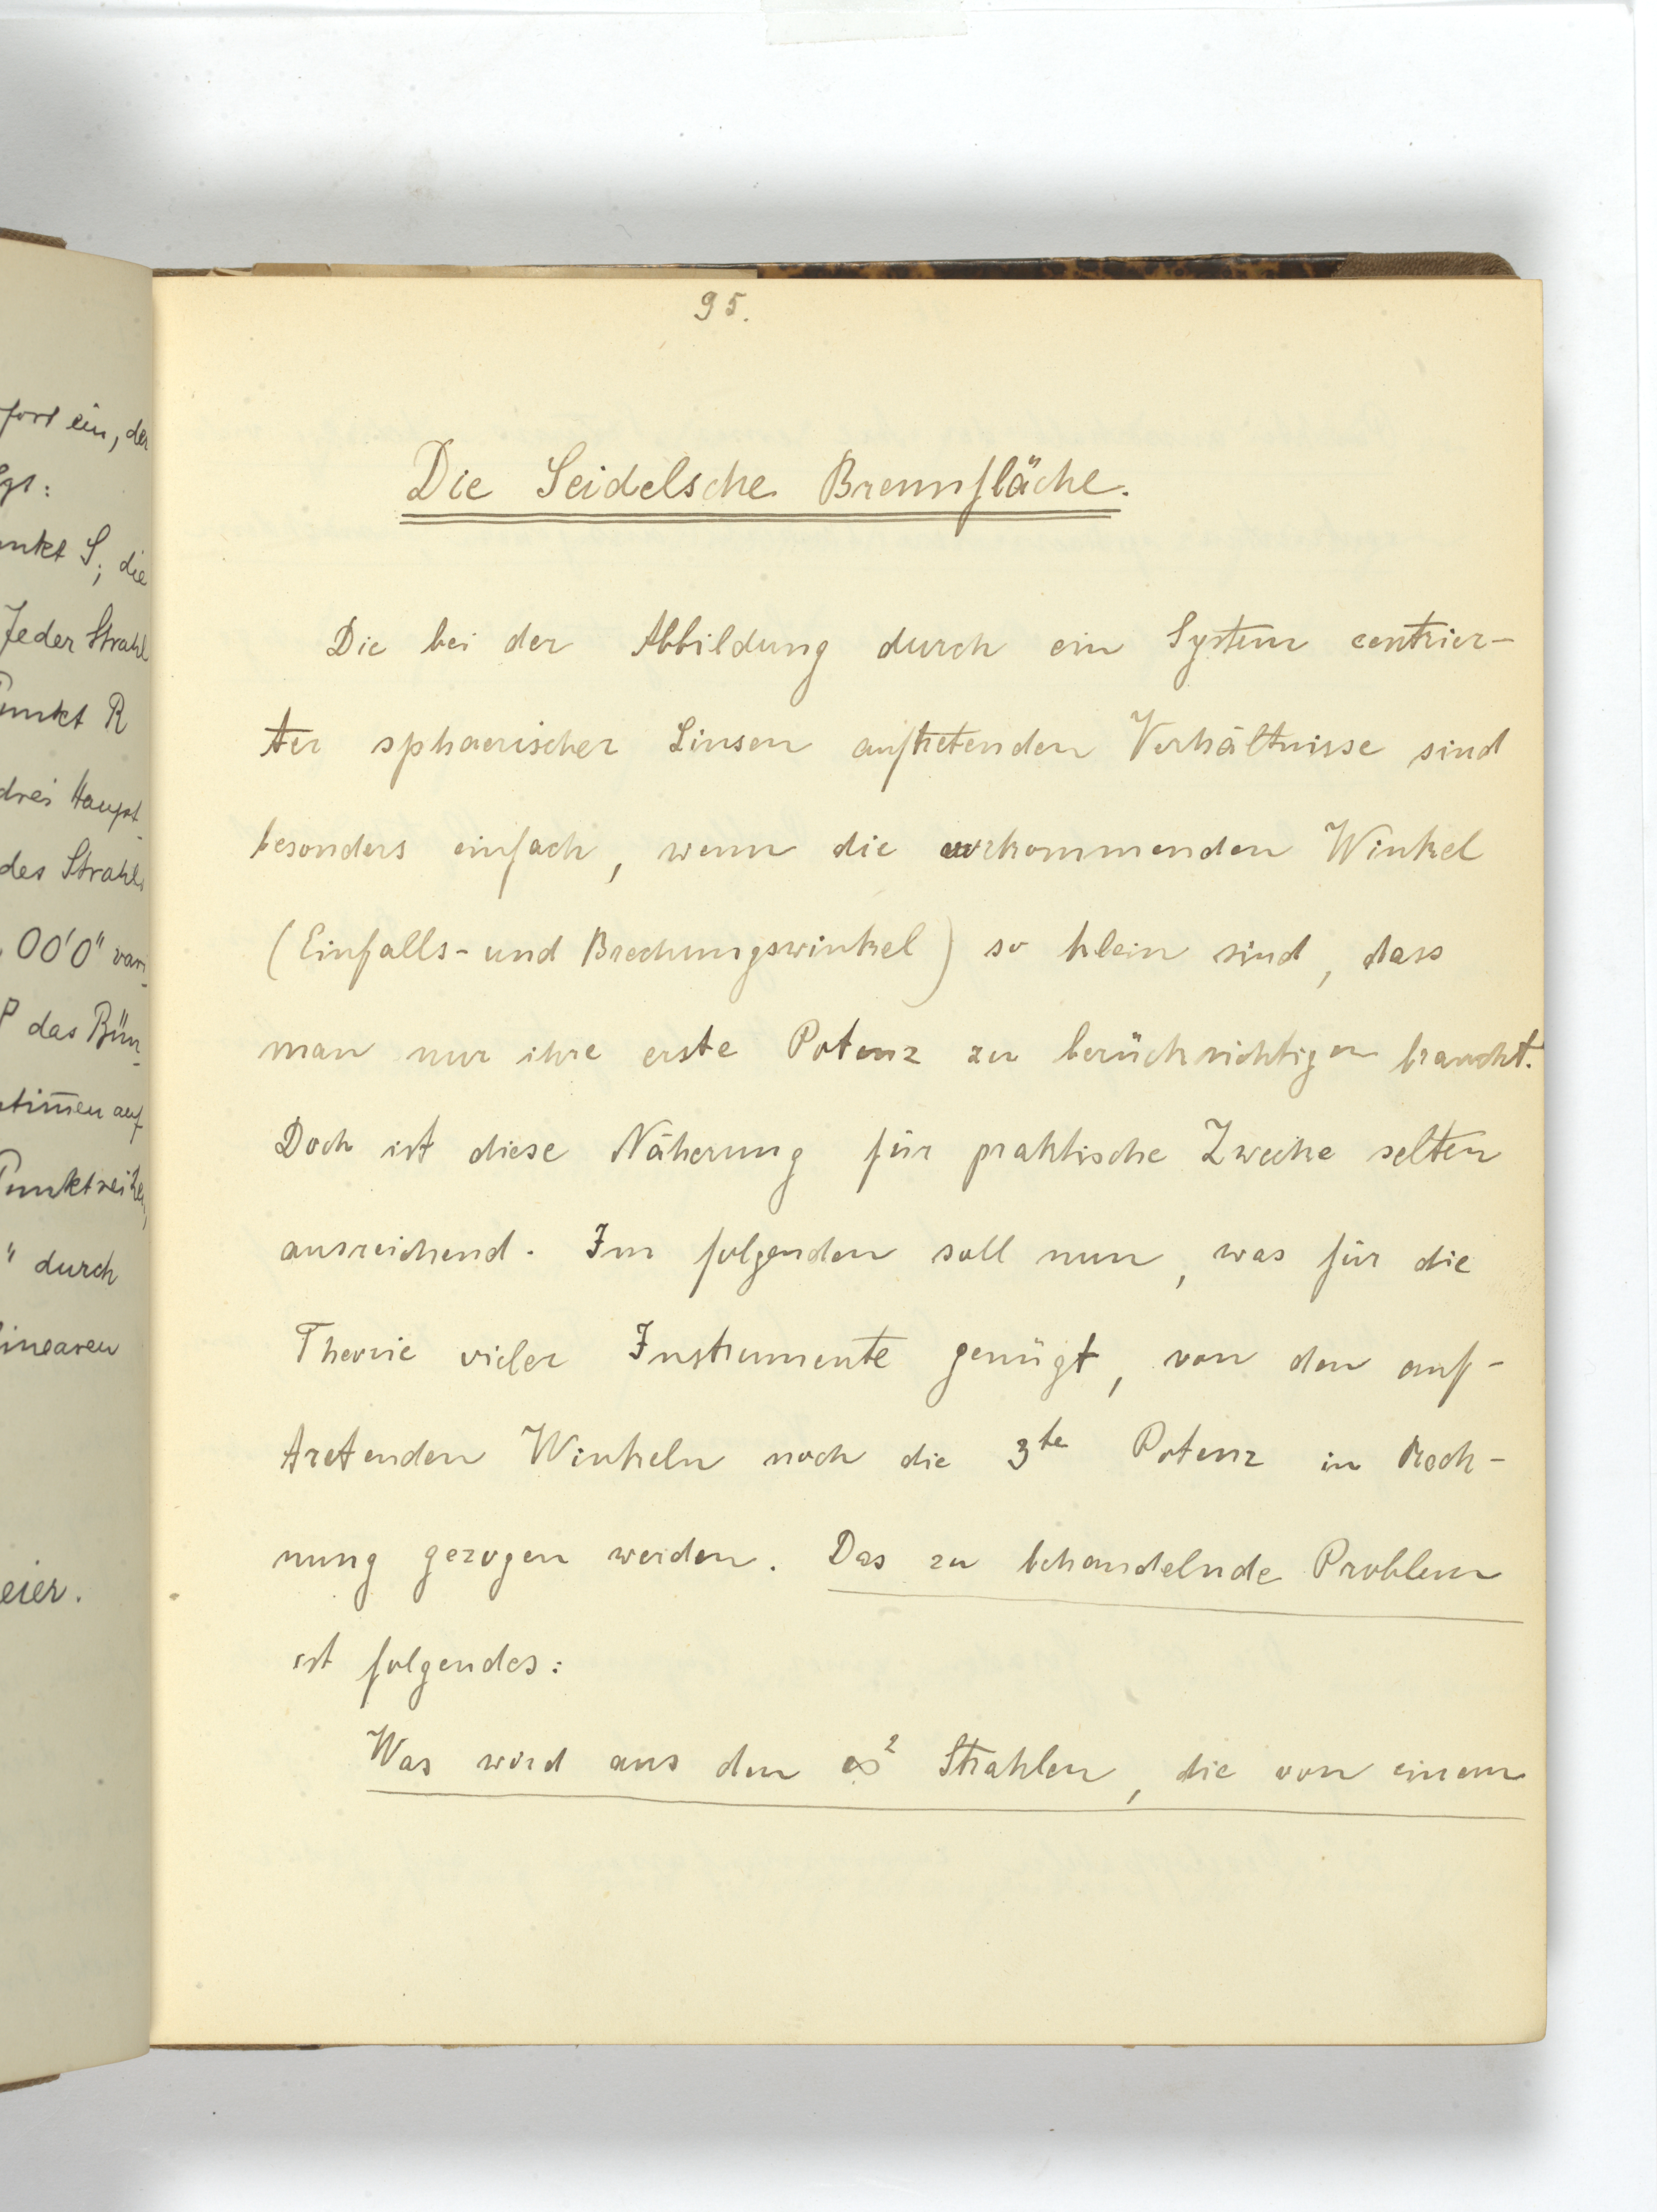 fort ein, der
gt:
nkt S; die
Jeder Strahl
Punkt R
drei Haupt-
des Strahls
OO'O" vari-
P das Bün-
Punktreihen,
" durch
linearen
eier.
95.
Die Seidelsche Brennfläche.
Die bei der Abbildung durch ein System centrier-
ter sphaerischer Linsen auftretenden Verhältnisse sind
besonders einfach, wenn die vorkommenden Winkel
(Einfalls- und Brechungswinkel) so klein sind, dass
man nur ihre erste Potenz zu berücksichtigen braucht.
Doch ist diese Näherung für praktische Zwecke selten
ausreichend. Im folgenden soll nun, was für die
Theorie vieler Instrumente genügt, von den auf-
tretenden Winkeln noch die 3te Potenz in Rech-
nung gezogen werden. Das zu behandelnde Problem
ist folgendes:
Was wird aus den ∞² Strahlen, die von einem